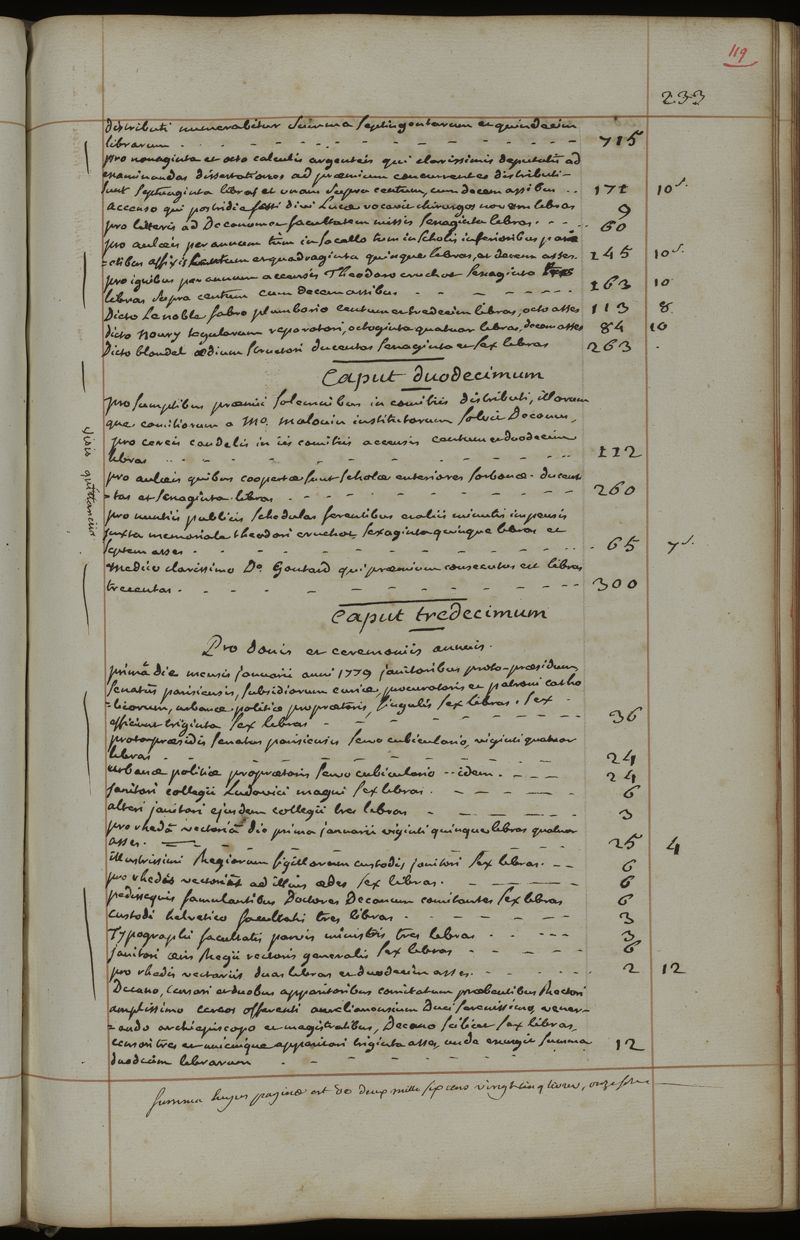 119
233
distributi numerabitur Summa septingentarum et quindecim
librarum - - - 715
pro nonaginta et octo calculis argenteis qui clarissimis deputatis ad
examinandas dissertationes ad præmium concurrentes distributi-
sunt septuaginta libras et unam supra centum, cum decem assibus .. 171 10 s.
accenso qui postridie festi divi Lucæ vocavit chirurgos novem libras 9
pro litteris ad Decanum et facultatem missis sexaginta libras - - - 60
pro aulæis per annum tùm in sacello tùm in scholis inferioribus parie
=tibus affixis centum et quadraginta quinque libras, et decem asses. 145 10 s.
pro ignibus per annum accensis Theodoro cruchot sexaginta tres
libras supra centum cum decem assibus - - - 163 10
Dicto Lenoble fabro plumbario centum et tredecim libras, octo asses 113 8
dicto Noury tegularum reparatori, octoginta quatuor libras, decem asses 84 10
Dicto blondel ædium structori ducentas sexaginta et sex libras 263 .
Caput duodecimum
pro sumptibus præmii solemnibus in comitiis distributi, illorum
que comitiorum a Mo. Malouin institutorum solvit Decanus,
pro cereis candelis in iis comitiis accensis centum et duodecim
libras - - - 112
pro aulæis quibus coopertæ sunt scholæ exteriores sorbonæ. ducen
=tas et sexaginta libras - - - 260
pro nuntiis publicis schedulas ferentibus et aliis minutis impensis
juxta memoriale theodori cruchot, sexaginta quinque libras et
septem asses - - - 65 7 s.
Medico clarissimo Do. Goutard qui præmium consecutus est libras
trecentas - - - 300
visis quittanciis
Caput tredecimum
Pro donis et ceremoniis annuis.
primâ die mensis januarii anni 1779 janitoribus proto-præsidum
senatûs parisiensis, subsidiorum curiæ, procuratoris et patroni catho
=licorum, urbanæ politiæ proprætoris, singulis sex libras. sex
efficiunt triginta sex libras - - - 36
proto-præsidis senatus parisiensis servo cubiculario, viginti quatuor
libras - - - 24
urbanæ politiæ proprætoris servo cubiculario -- idem - - - 24
janitori collegii Ludovici magni sex libras - - - 6
alteri janitori ejusdem collegii tres libras - 3
pro rhedâ vectoriâ die prima januarii viginti quinque libras quatuor
asses. - - - 25 4
illustrissimi Regiorum sigillorum custodis janitori sex libras. - - 6
pro rhedis vectoriis ad illius ædes sex libras. - - - 6
pedissequis famulantibus Doctores Decanum comitantes sex libras 6
custodi helvetico facultatis tres libras - - - 3
Typographi facultatis parvis ministris tres libras - - - 3
janitori ærii Regii rectoris generalis sex libras - - - 6
pro rhedis vectoriis duas libras et duodecim asses. - - - 2 12
Decano, censori et duobus apparitoribus comitatum præbentibus Rectori
amplissimo cereos offerenti aurelianensium Duci serenissimo, vener-
=ando archiepiscopo et magistratibus, Decano scilicet sex libras,
censori tres et unicuique apparitori triginta asses, unde exurgit summa
duodecim librarum - - - 12
summa hujus paginæ est de deux mille six cens vingt cinq livres, onze sous